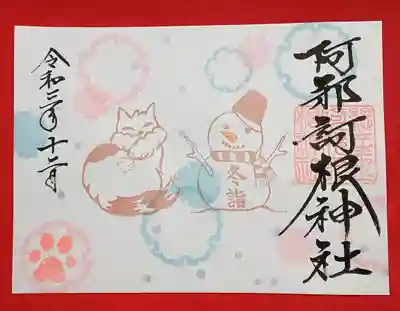 阿邪訶根神社
冬詣
令和三年十二月